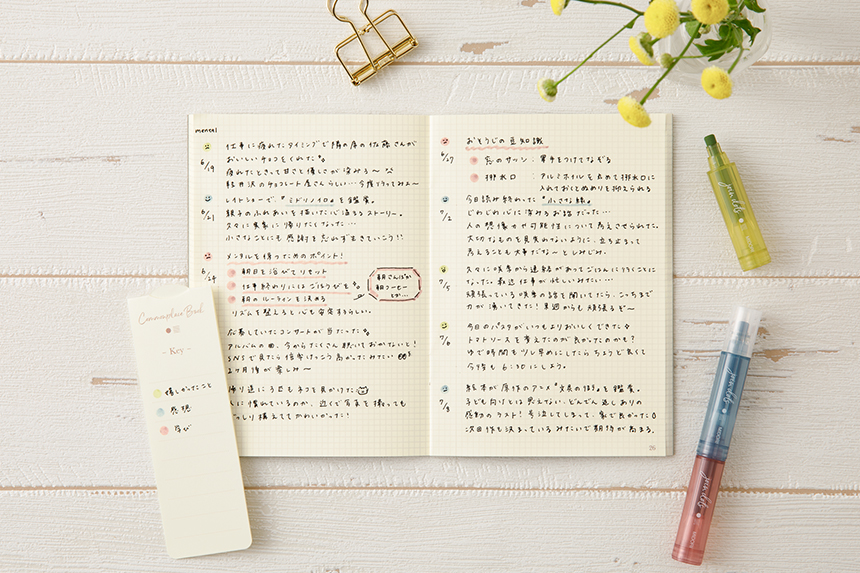 mental
仕事に疲れたタイミングで隣の席の佐藤さんが
6/19
おいしいチョコをくれた
疲れたときって甘さと優しさが染みる〜
軽井沢のチョコレート屋さんらしい…今度行ってみよ〜
レイトショーで、『ミドリノイロ』を鑑賞。
6/21
親子のふれあいを描いた心温まるストーリー。
久々に実家に帰りたくなった…
小さなことにも感謝を忘れず生きていこう!!
メンタルを保つためのポイント!
6/24
朝日を浴びてリセット
仕事終わりにはごほうびを
朝のルーティンを決める
朝さんぽか
朝コーヒー
とか…
リズムを整えると心も安定するらしい。
応募していたコンサートが当たった
アルバムの曲、今からたくさん聴いておかないと!
SNSで見たら倍率けっこう高かったみたい
2ヶ月後が楽しみ〜
帰り道に3匹もネコを見かけた
人に慣れているのか、近くで写真を撮っても
どっしり構えててかわいかった!
おそうじの豆知識
6/27
窓のサッシ：軍手をつけてなぞる
排水口：アルミホイルを丸めて排水口に
入れておくとぬめりを抑えられる
今日読み終わった『小さな緑』
7/2
じわじわ心に染みるお話だった…
人の想像せや可能性について考えさせられた。
大切なものを見失わないように、立ち止まって
考えることも大事だな〜としみじみ。
久々に咲季から連絡があってごはんに行くことに
7/5
なった。最近仕事が忙しいみたい…
頑張っている咲季の話を聞いてたら、こっちまで
力が湧いてきた!来週からも頑張るぞ〜
今日のパスタがいつもよりおいしくできた
7/6
トマトソースを変えたのが良かったのかも?
ゆで時間も少し早めにしたらちょうど良くて
今後も6:30にしよう。
絵本が原作のアニメ『文長のほう』を鑑賞。
7/8
子ども向けとは思えない、どんでん返しありの
感動のラスト!号泣してしまって、家で良かった
次回作も決まっているみたいで期待が高まる。
25
Commonplace Book
- Key -
嬉しかったこと
感想
学び
MIDORI
MIDORI